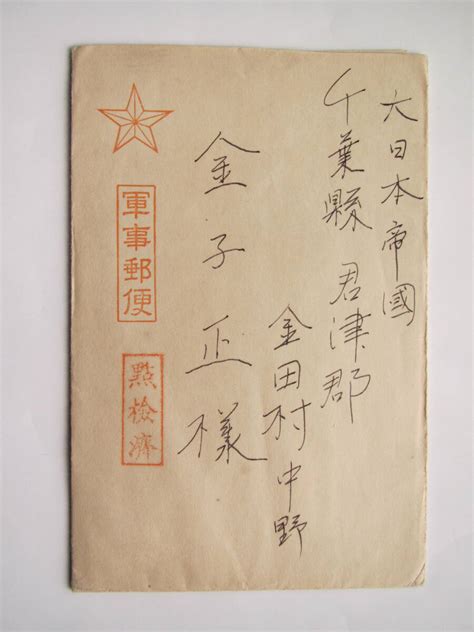 大日本帝國
千葉縣 君津郡
金田村中野
金子正樣
軍事郵便
點檢濟